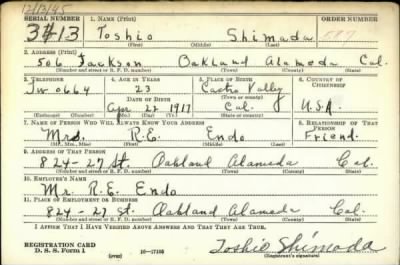 12/13/45
SERIAL NUMBER 1. NAME (Print) ORDER NUMBER
3413 Toshio Shimada 587
(First) (Middle) (Last)
2. ADDRESS (Print)
506 Jackson Oakland Alameda Cal.
(Number and street or R. F. D. number) (Town) (County) (State)
3. TELEPHONE 4. AGE IN YEARS 5. PLACE OF BIRTH 6. COUNTRY OF CITIZENSHIP
Tw 0664 23 Castro Valley
DATE OF BIRTH (Town or county)
Apr 22 1917 Cal. U.S.A.
(Exchange) (Number) (Mo.) (Day) (Yr.) (State or country)
7. NAME OF PERSON WHO WILL ALWAYS KNOW YOUR ADDRESS 8. RELATIONSHIP OF THAT PERSON
Mrs. R.E. Endo Friend.
(Mr., Mrs., Miss) (First) (Middle) (Last)
9. ADDRESS OF THAT PERSON
824-27 St. Oakland Alameda Cal.
(Number and street or R. F. D. number) (Town) (County) (State)
10. EMPLOYER'S NAME
Mr. R.E. Endo
11. PLACE OF EMPLOYMENT OR BUSINESS
824-27 St. Oakland Alameda Cal.
(Number and street or R. F. D. number) (Town) (County) (State)
I AFFIRM THAT I HAVE VERIFIED ABOVE ANSWERS AND THAT THEY ARE TRUE.
REGISTRATION CARD
D. S. S. Form 1 (over) 16-17105 Toshio Shimada
(Registrant's signature)